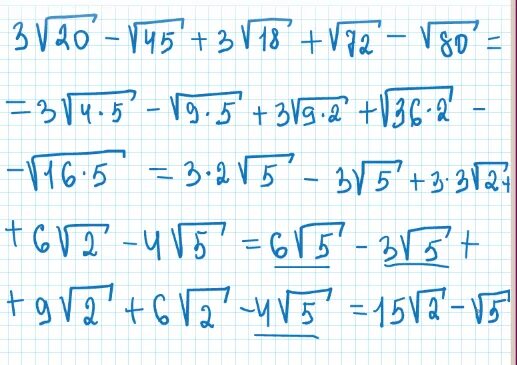 3√20 - √45 + 3√18 + √72 - √80 =
= 3√4·5 - √9·5 + 3√9·2 + √36·2 -
-√16·5 = 3·2√5 - 3√5 + 3·3√2 +
+ 6√2 - 4√5 = 6√5 - 3√5 +
+ 9√2 + 6√2 - 4√5 = 15√2 - √5